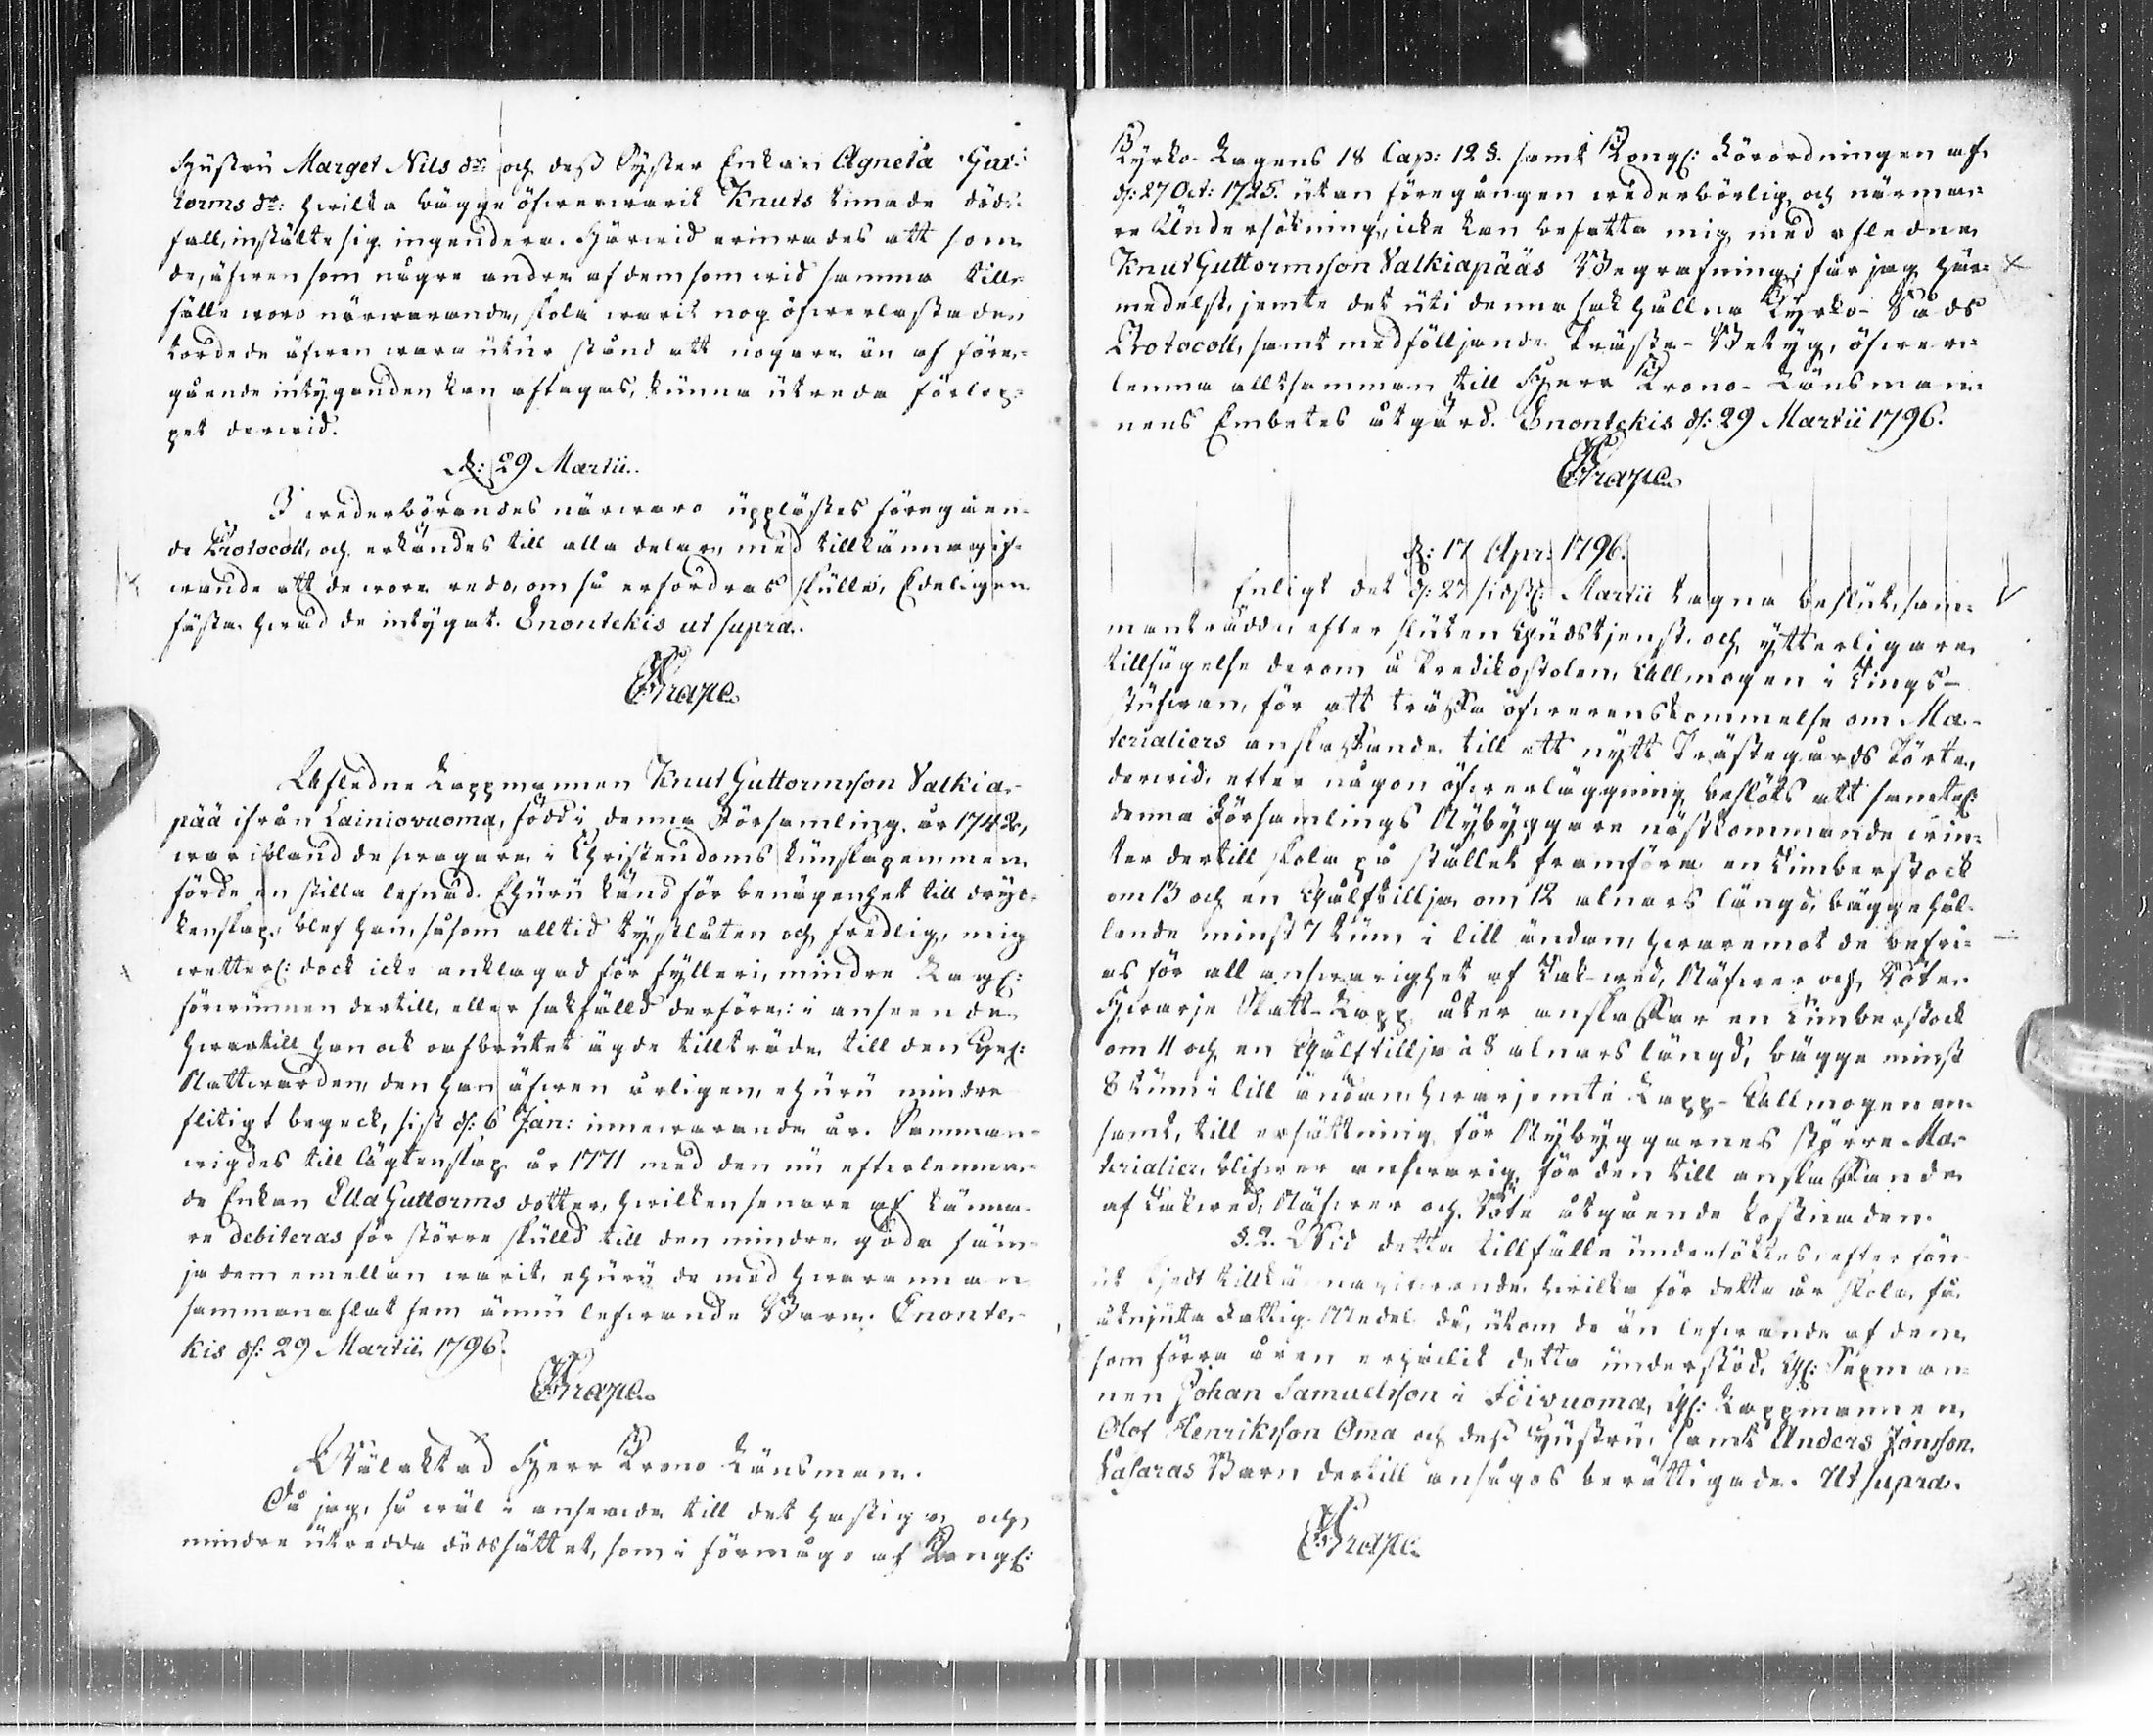 Hustru Marget Nils dr: och dess Syster Enkan Agneta Gut-
torms dr: hwilka bägge öfwerwarit Knuts timade döds-
fall, instälte sig ingendera. Härwid erinrades att som
de, äfwen som några andra af dem som wid samma till-
fälle woro närwarande, skola warit nog öfwerlastade,
torde de äfwen wara utur stånd att nogare än af före-
gående intyganden kan aftagas, kunna utreda förlop-
pet derwid.
d: 29 Martii.
I wederbörandes närwaro upplästes föregåen-
de Protocoll, och erkändes till alla delar, med tillkännagif-
wande att de woro redo, om så erfordras skulle, Edeligen
fästa hwad de intygat. Enontekis ut supra.
Grape
Afledne Lappmannen Knut Guttormsson Valkia-
pää ifrån Lainiovuoma, född i denna Församling år 1742,
war ibland de swagare i Christendoms kunskapen men
förde en stilla lefnad. Ehuru känd för benägenhet till dryc-
kenskap, blef han, såsom alltid tystlåten och fredlig, mig
wetterl: dock icke anklagad för fylleri, mindre Lagl:
förwunnen dertill, eller sakfälld derföre: i anseende
hwartill han ock oafbrutet ägde tillträde till den Hel:
Nattwarden, den han äfwen årligen, ehuru mindre
flitigt begeck, sist d: 6 Jan: innewarande år. Samman-
wigdes till lägtenskap år 1771 med den nu efterlemna-
de Enkan Ella Guttorms dotter, hwilken senare af känna-
re debiteras för större skuld till den mindre goda säm-
ja dem emellan warit, ehuru de med hwarannan
sammanaflat fem ännu lefwande Barn. Enonte-
kis d: 29 Martii 1796.
Grape
Wälaktad Herr Krono Länsman.
Då jag, så wäl i anseende till det hastiga och
mindre utredda dödssättet, som i förmågo af Kongl:
Kyrko-Lagens 18 Cap: 12 §. samt Kongl: Förordningen af
d: 27 Oct: 1725. utan föregången wederbörlig och närma-
re Undersökning, icke kan befatta mig med afledne
Knut Guttormsson Valkiapääs Begrafning; får jag här-
medelst, jemte det uti denna sak hållna Kyrko-Råds
Protocoll, samt medföljande Präste-Betyg, öfwer-
lemna alltsamman till Herr Krono-Länsman-
nens Embetes åtgärd. Enontekis d: 29 Martii 1796.
Grape
d: 17 Apr: 1796.
Enligt det d: 27 sidstl: Martii tagna beslut, sam-
manträdde efter sluten Gudstjenst och ytterligare
tillsägelse derom å Predikostolen, Allmogen i Tings-
stufwan, för att träffa öfwerenskommelse om Ma-
terialiers anskaffande till ett nytt Prästegårds Pörte,
derwid, efter någon öfwerläggning beslöts att samtel:
denna Församlings Nybyggare nästkommande win-
ter dertill skola på stället framföra en timberstock
om 13 och en Gulftillja om 12 alnars längd, bägge hål-
lande minst 7 tum i lill ändan, hwaremot de befri-
as för all answarighet af Tak-wed, Näfwer och
Hwarje Skatt-Lapp åter anskaffar en timberstock
om 11 och en Gulftillja à 8 alnars längd, bägge minst
8 tum i lill ändan, hwarjemte Lapp-Allmogen en-
samt, till ersättning för Nybyggarnes större Ma-
terialier, blifwer answarig för den till anskaffande
af takwed, Näfwer och utgående kostnaden.
§. 2. Wid detta tillfälle undersöktes, efter för-
ut skedt tillkännagifwande, hwilka för detta år skola få
åtnjuta Fattig-Medel då, utom de än lefwande af dem
som förra åren erhållit detta understöd,
nen Johan Samuelsson i Lappmannen
Olof Henriksson Oma och dess Hustru, samt Anders Jonsson
Barn dertill ansågos berättigade. Ut supra.
Grape